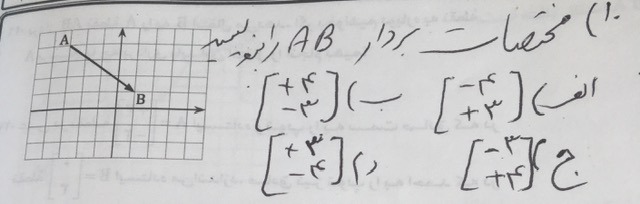 ۱۰) مختصات بردار AB را بنویسید
الف) [-۴ +۳] ب) [+۴ -۳]
ج) [-۳ +۴] د) [+۳ -۴]
A
B